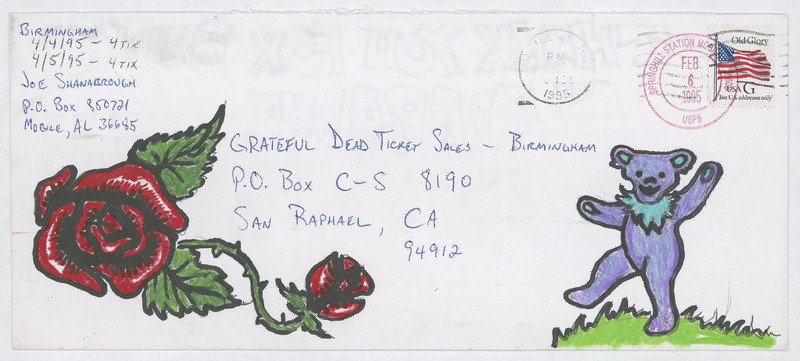 BIRMINGHAM
4/4/95 – 4 TIX
4/5/95 – 4 TIX
JOE SHANABROUGH
P.O. BOX 850721
MOBILE, AL 36685
PM
1995
SPRINGHILL STATION
FEB
6
1995
USPS
Old Glory
USA G
For U.S. addresses only
GRATEFUL DEAD TICKET SALES – BIRMINGHAM
P.O. BOX C-S 8190
SAN RAPHAEL, CA
94912